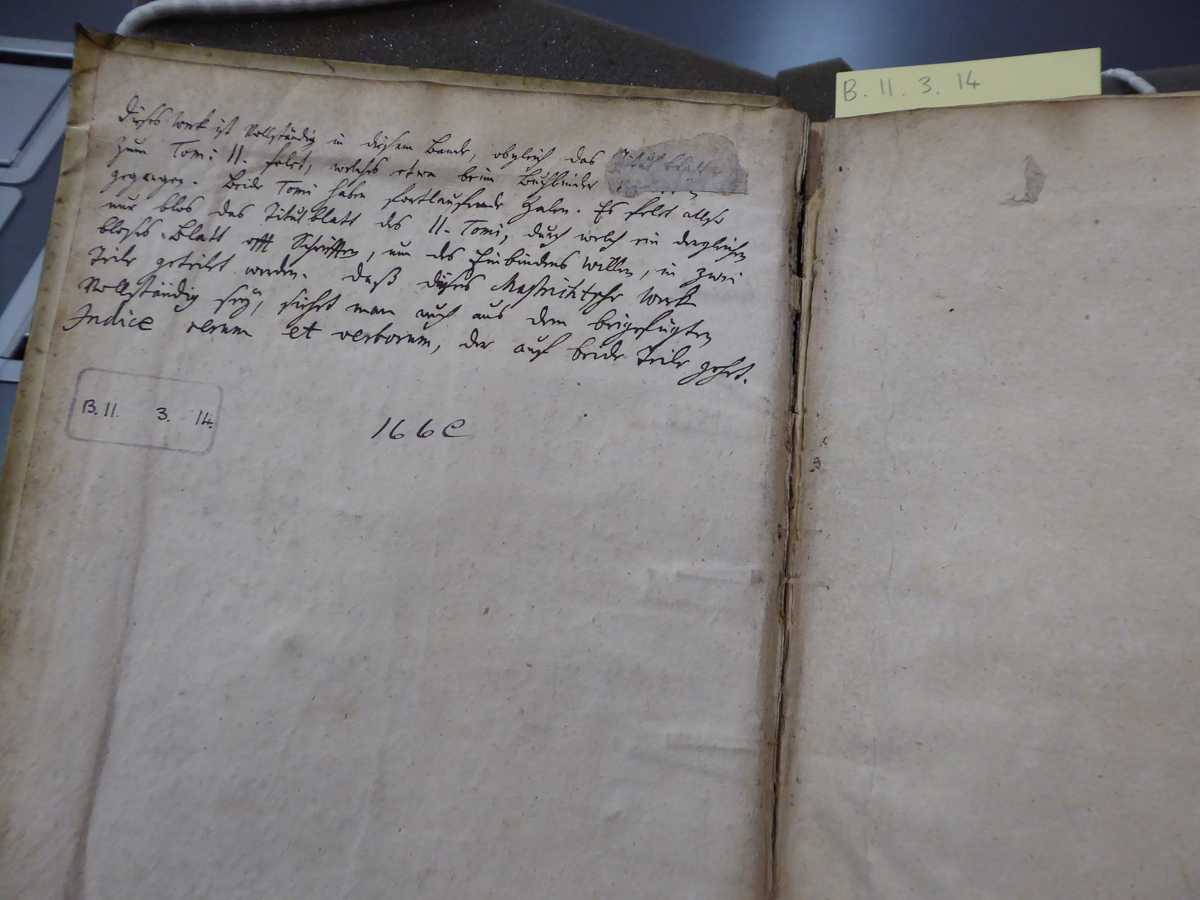 Dieses Werk ist Vollständig in diesem Bande, obgleich das Titulblatt
zum Tomi II. felet, welches etwa beim Buchbinder
gegangen. Beide Tomi haben fortlaufende Zalen. Es felet also
nur blos das Titulblatt des II. Tomi, durch welch ein dergleichen
bloses Blatt offt Schriften, um des Einbindens Willen, in zwei
Teile geteilet werden. Daß dieses Mastrichtsche Werk
Vollständig sey, siehet man auch aus dem beigefügten
Indice rerum et verborum, der auf beide Teile gehet.
B.II. 3. 14.
166e
B. II. 3. 14